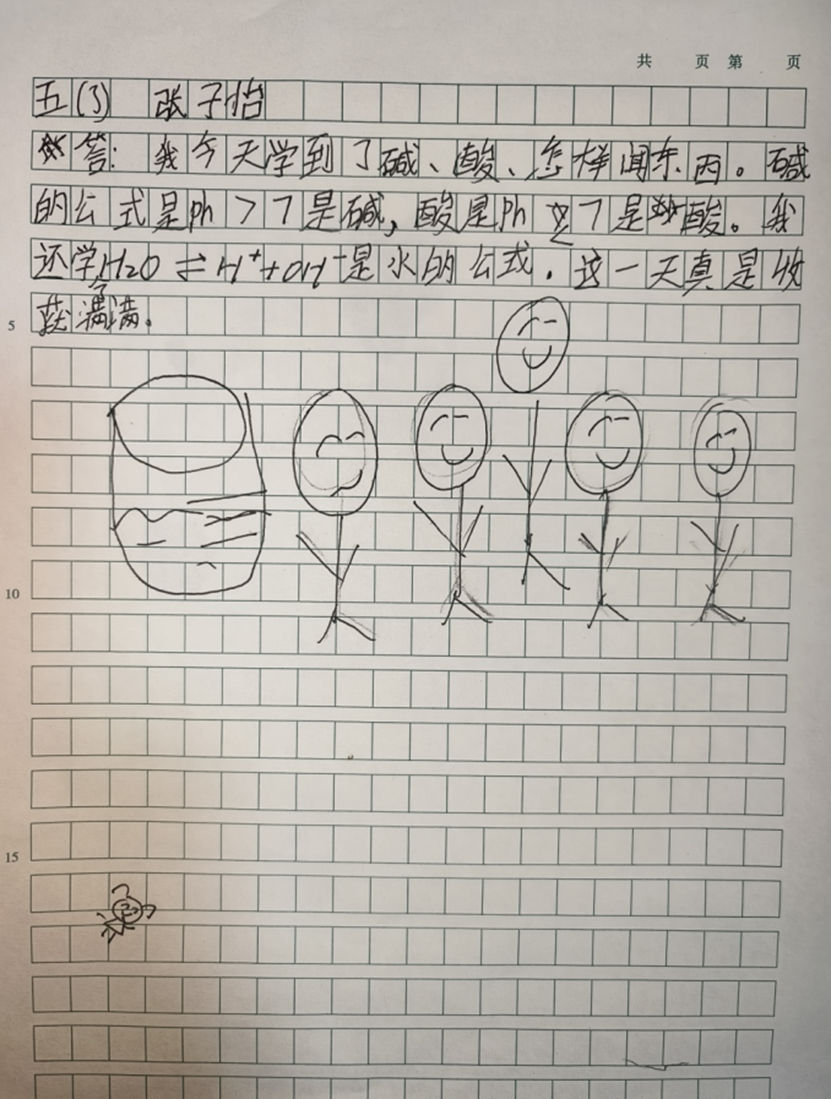 共 页 第 页
五(3) 张子怡
答: 我今天学到了碱、酸、怎样闻东西。碱
的公式是ph>7是碱,酸是ph 7是酸。我
还学会H2O⇌H⁺+OH⁻是水的公式.这一天真是收
获满满。
5
10
15